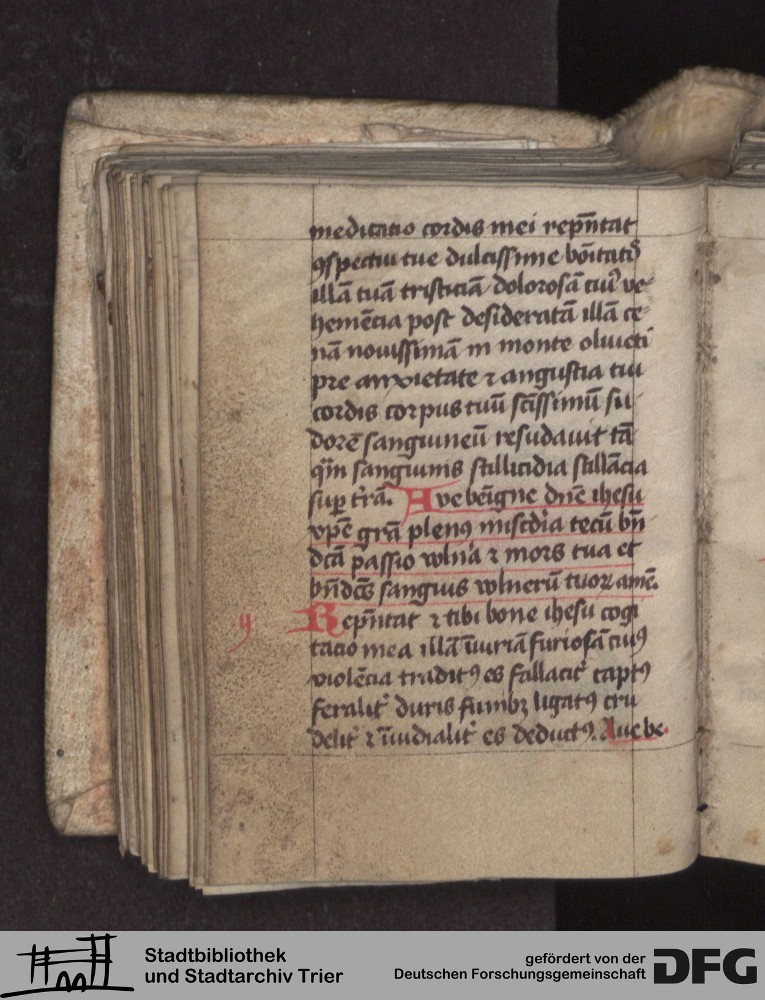 meditatio cordis mei rep̄ntat
ꝯspectui tue dulcissime bōitatis
illā tuā tristiciā dolorosā cuiꝰ ve-
hemēcia post desideratā illā ce-
nā nouissimā in monte oliueti
pre anxietate ⁊ angustia tui
cordis corpus tuū sc̄issimū su-
dorē sanguineū resudauit tā
qm̄ sanguinis stillicidia stillācia
suꝑ t̄rā. Aue beīgne dn̄e ihesu
xp̄e grā plenꝰ mis̄cdia tecū bn̄
dc̄ā passio wln̄a ⁊ mors tua et
bn̄dc̄s sanguis wlnerū tuoꝝ amē.
ij Rep̄ntat ⁊ tibi bone ihesu cogi
tacio mea illā iniuriā furiosā cuiꝰ
violēcia traditꝰ es fallacit̄ captꝰ
feralit̄ duris funibꝫ ligatꝰ cru
delit̄ ⁊ es deductꝰ. Aue be.
Stadtbibliothek
und Stadtarchiv Trier
gefördert von der
Deutschen Forschungsgemeinschaft
DFG